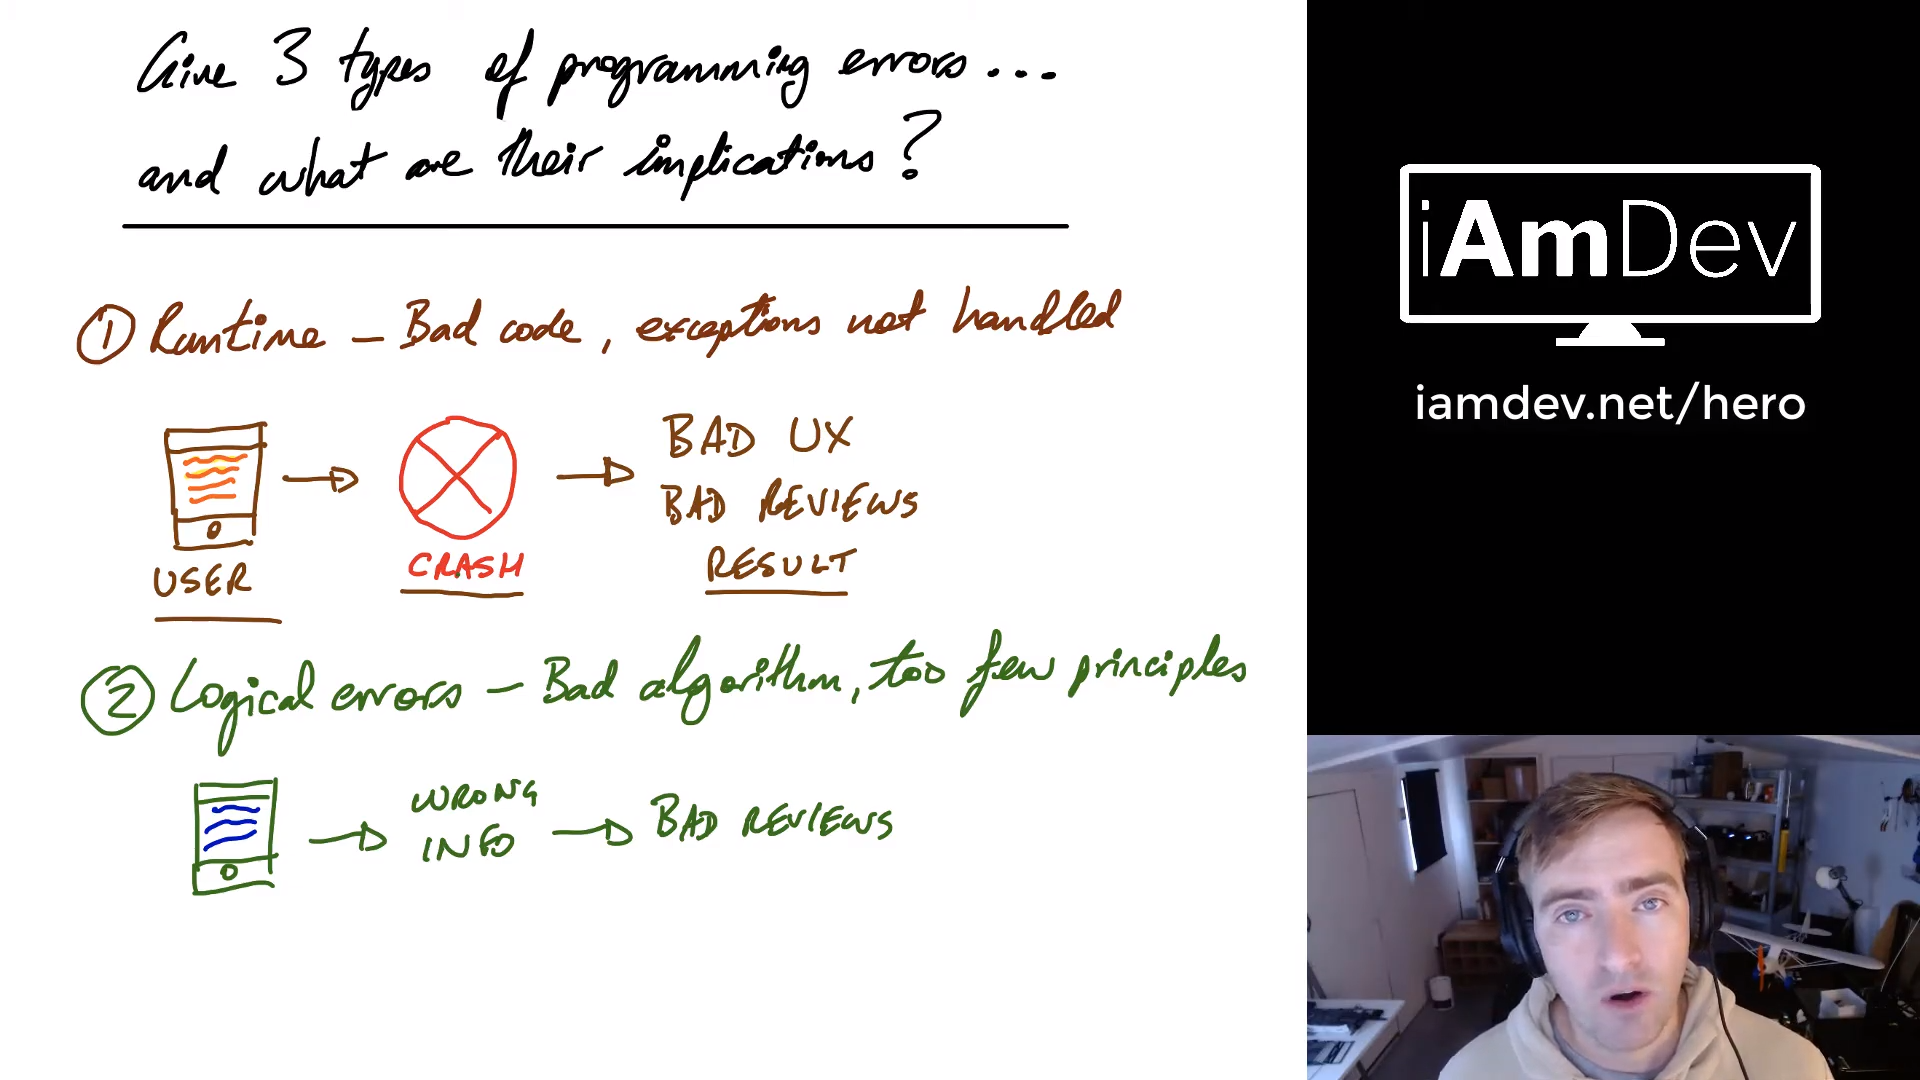 Give 3 types of programming errors...
and what are their implications?
① Runtime – Bad code, exceptions not handled
USER
CRASH
BAD UX
BAD REVIEWS
RESULT
② Logical errors – Bad algorithm, too few principles
WRONG
INFO
BAD REVIEWS
iAmDev
iamdev.net/hero